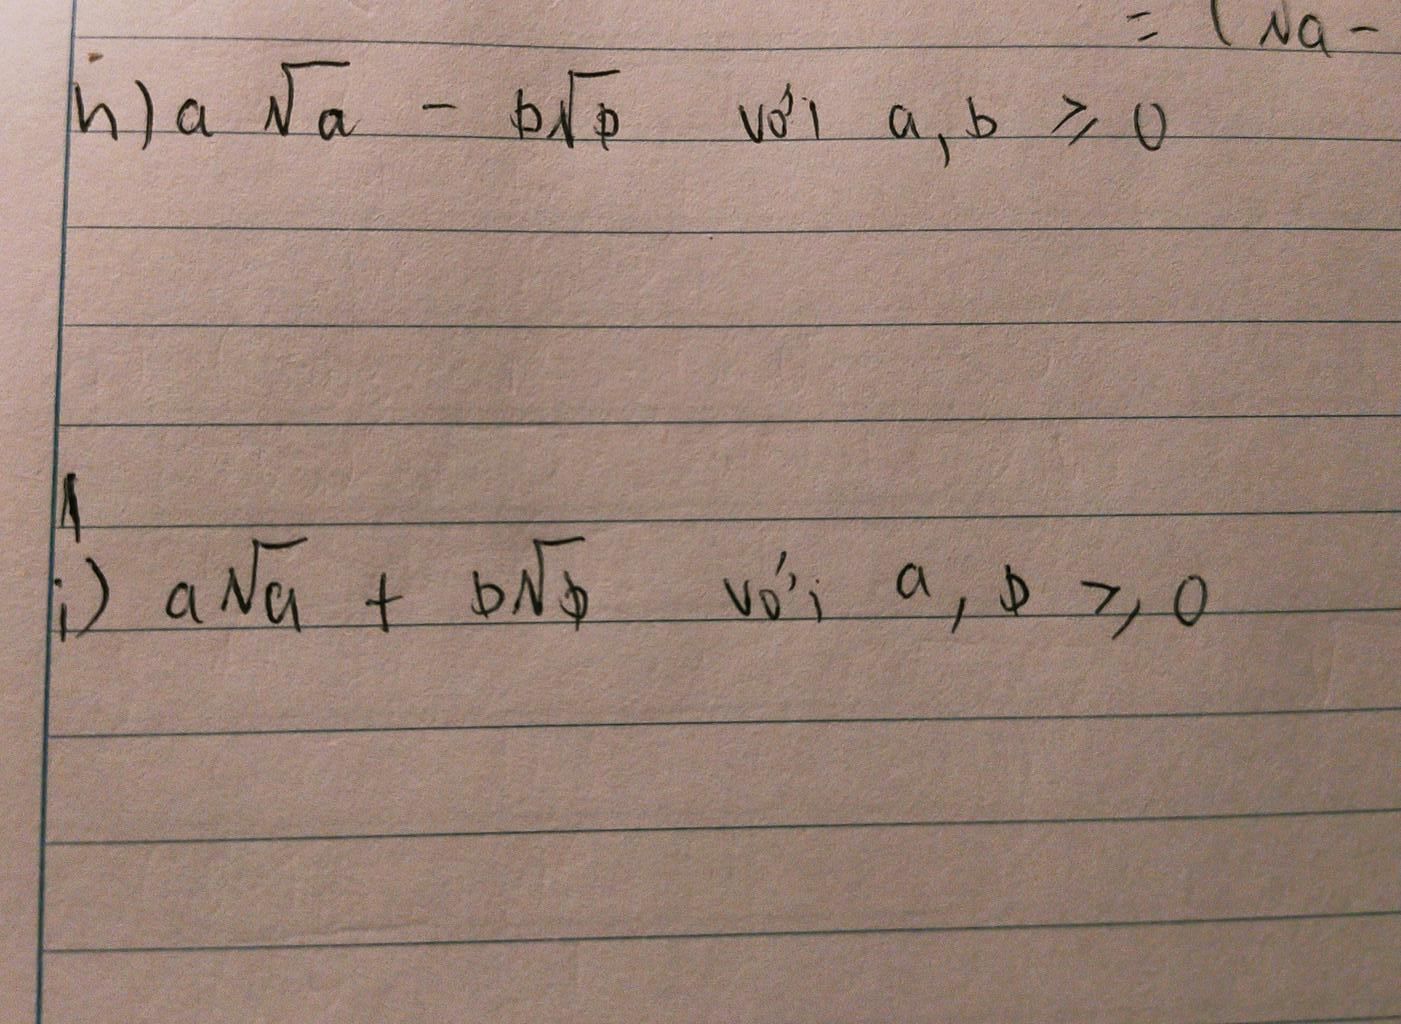 = (√a -
h) a √a - b√b với a, b ≥ 0
i) a√a + b√b với a, b ≥ 0